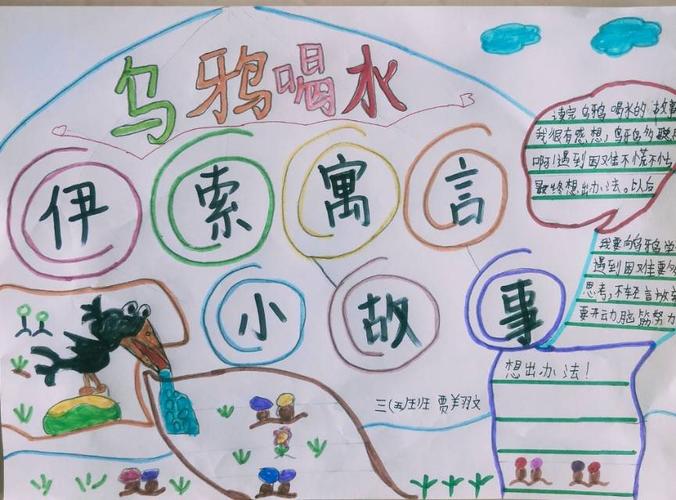 乌鸦喝水
伊索寓言
小故事
读完乌鸦喝水的故事
我很有感想,乌鸦多聪
啊!遇到困难不慌不忙
最终想出办法。以后
我要向乌鸦学
遇到困难要
思考,不轻言放弃
要开动脑筋努力
想出办法!
三(五)班 贾翔文